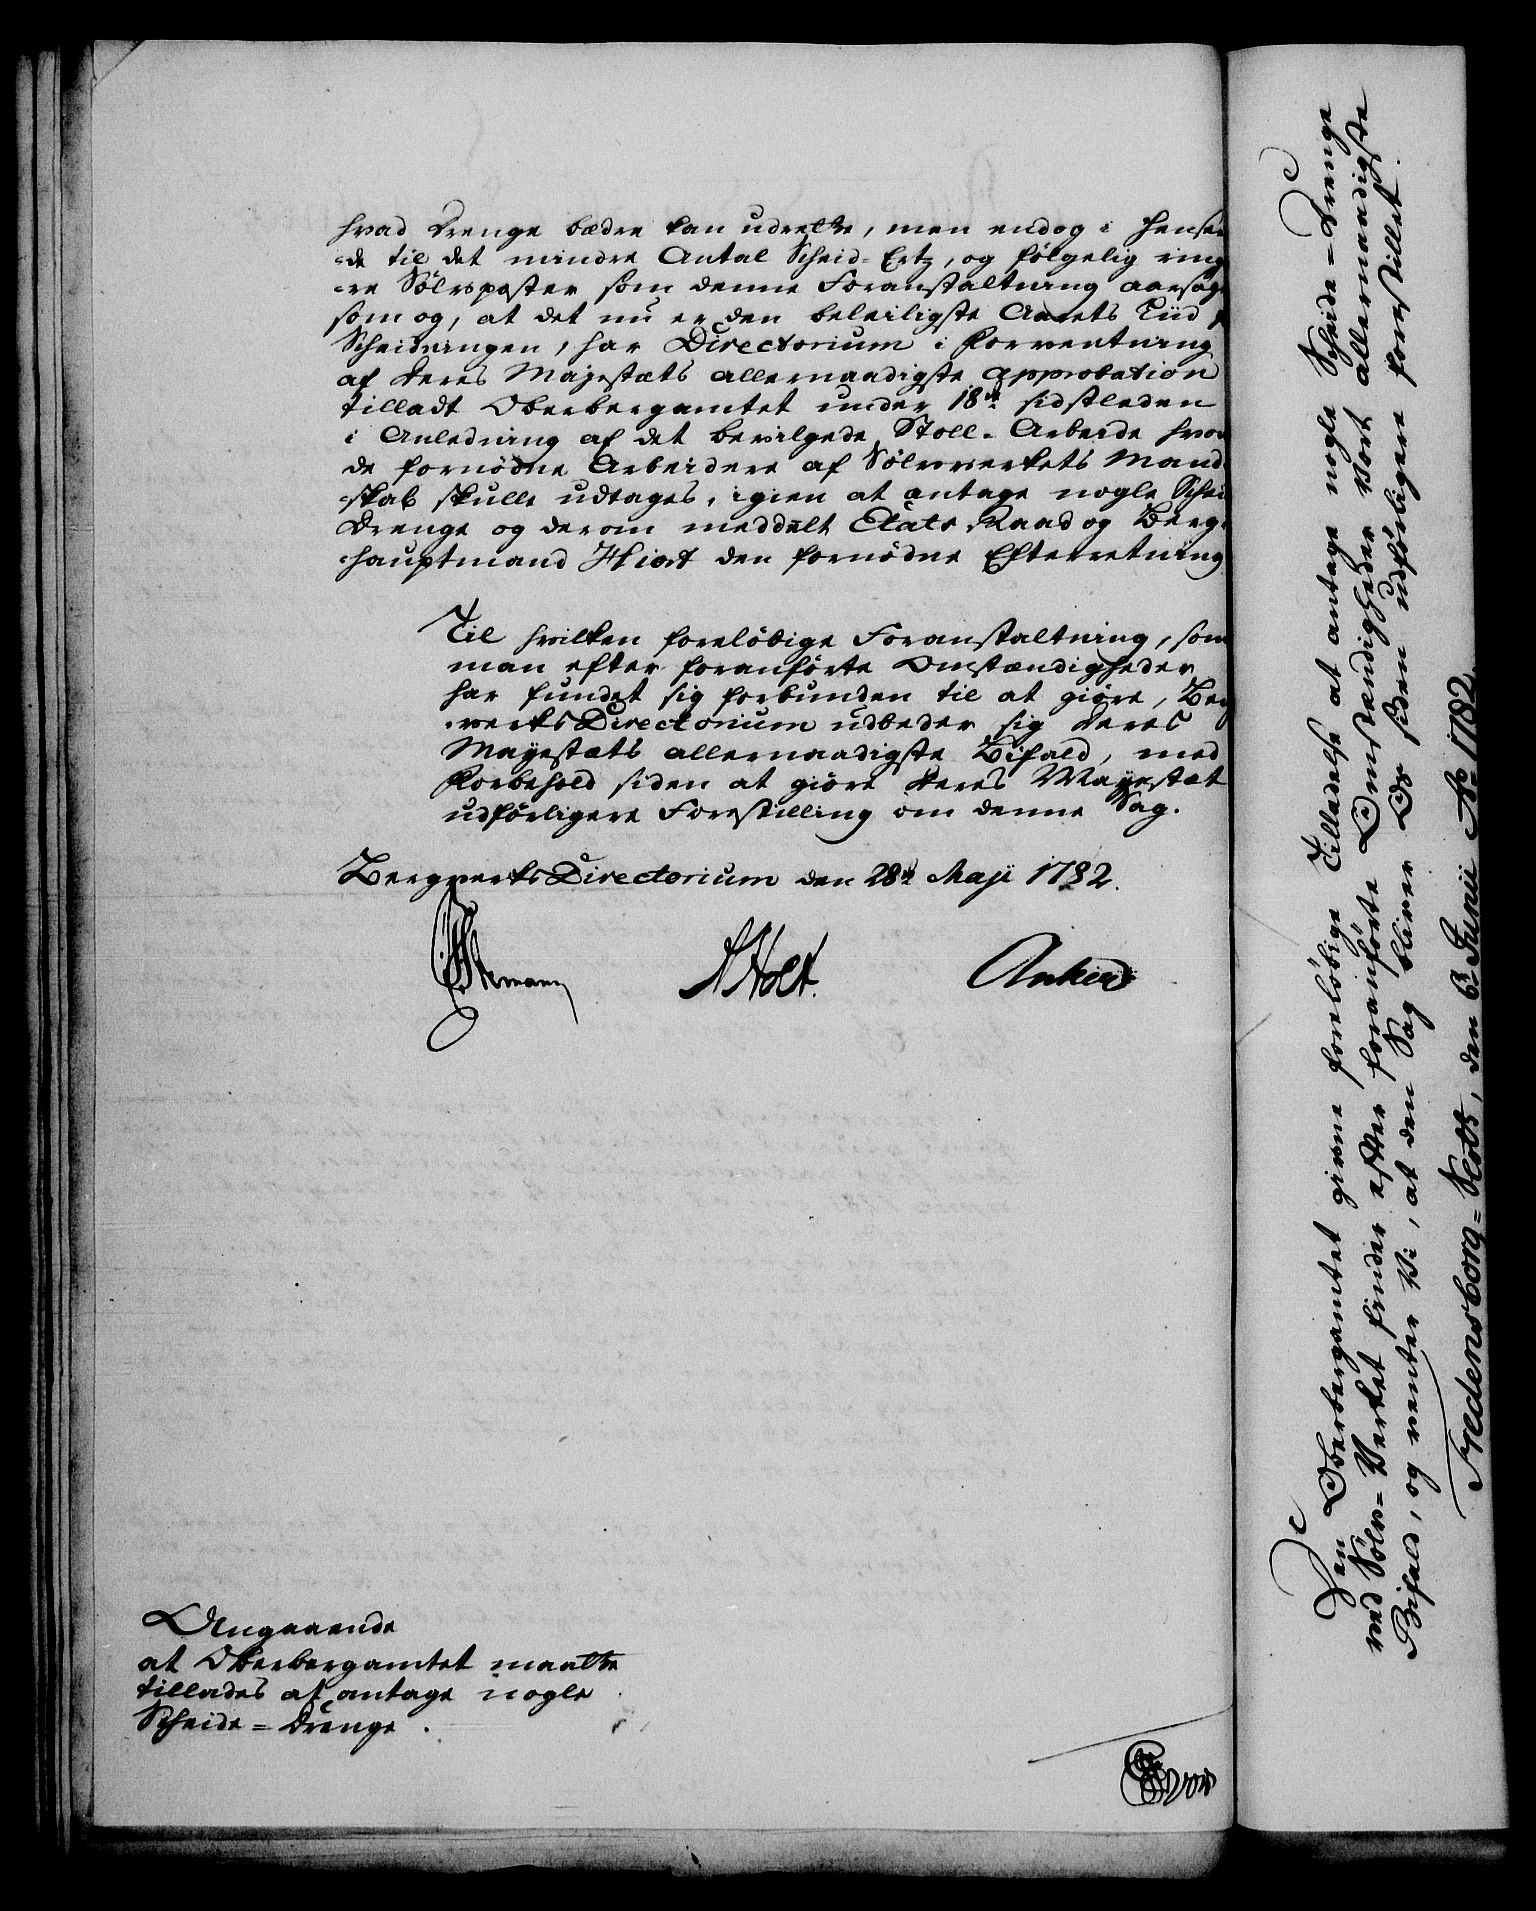 hvad Drenge bædre kan udrette, men endog i Hensee
-de til det mindre Antal Scheid-Ertz, og følgelig ring
-re Sølvposter som denne Foranstaltning aarsag
som og, at det nu er den beleiligste Aarets Tiid
Scheidningen, har Directorium i Forventning
af Deres Majestæts allernaadigste approbation
tilladt Oberbergamtet under 18de sidstleden
i Anledning af det bevilgede Stoll-Arbeide hvor
de fornødne Arbeidere af Sølvverkets Mand
-skab skulle udtages, igien at antage nogle Schei
Drenge og derom meddelt Etats Raad og Berg-
-hauptmand Hiort den fornødne Efterretning
Til hvilken foreløbige Foranstaltning, som
man efter foranførte Omstændigheder
har fundet sig forbunden til at giøre, Berg
-verks Directorium udbeder sig Deres
Mayestæts allernaadigste Bifald, med
Forbehold siden at giøre Deres Mayestæt
udførligere Forestilling om denne Sag.
Bergverks Directorium den 28de Maji 1782.
Holt. Anker
Angaaende
at Oberbergamtet maatte
tillades at antage nogle
Scheide=Drenge.
Den Oberbergamtet givne foreløbige Tilladelse at antage nogle Scheide=Drenge
ved Sølv=Verket finder efter foranførte Omstændigheder Vort allernaadigste
Bifald, og venter Vi, at den Sag bliver Os siden udførligere forestillet.
Fredensborg=Slott, den 6te Junii Ao 1782.